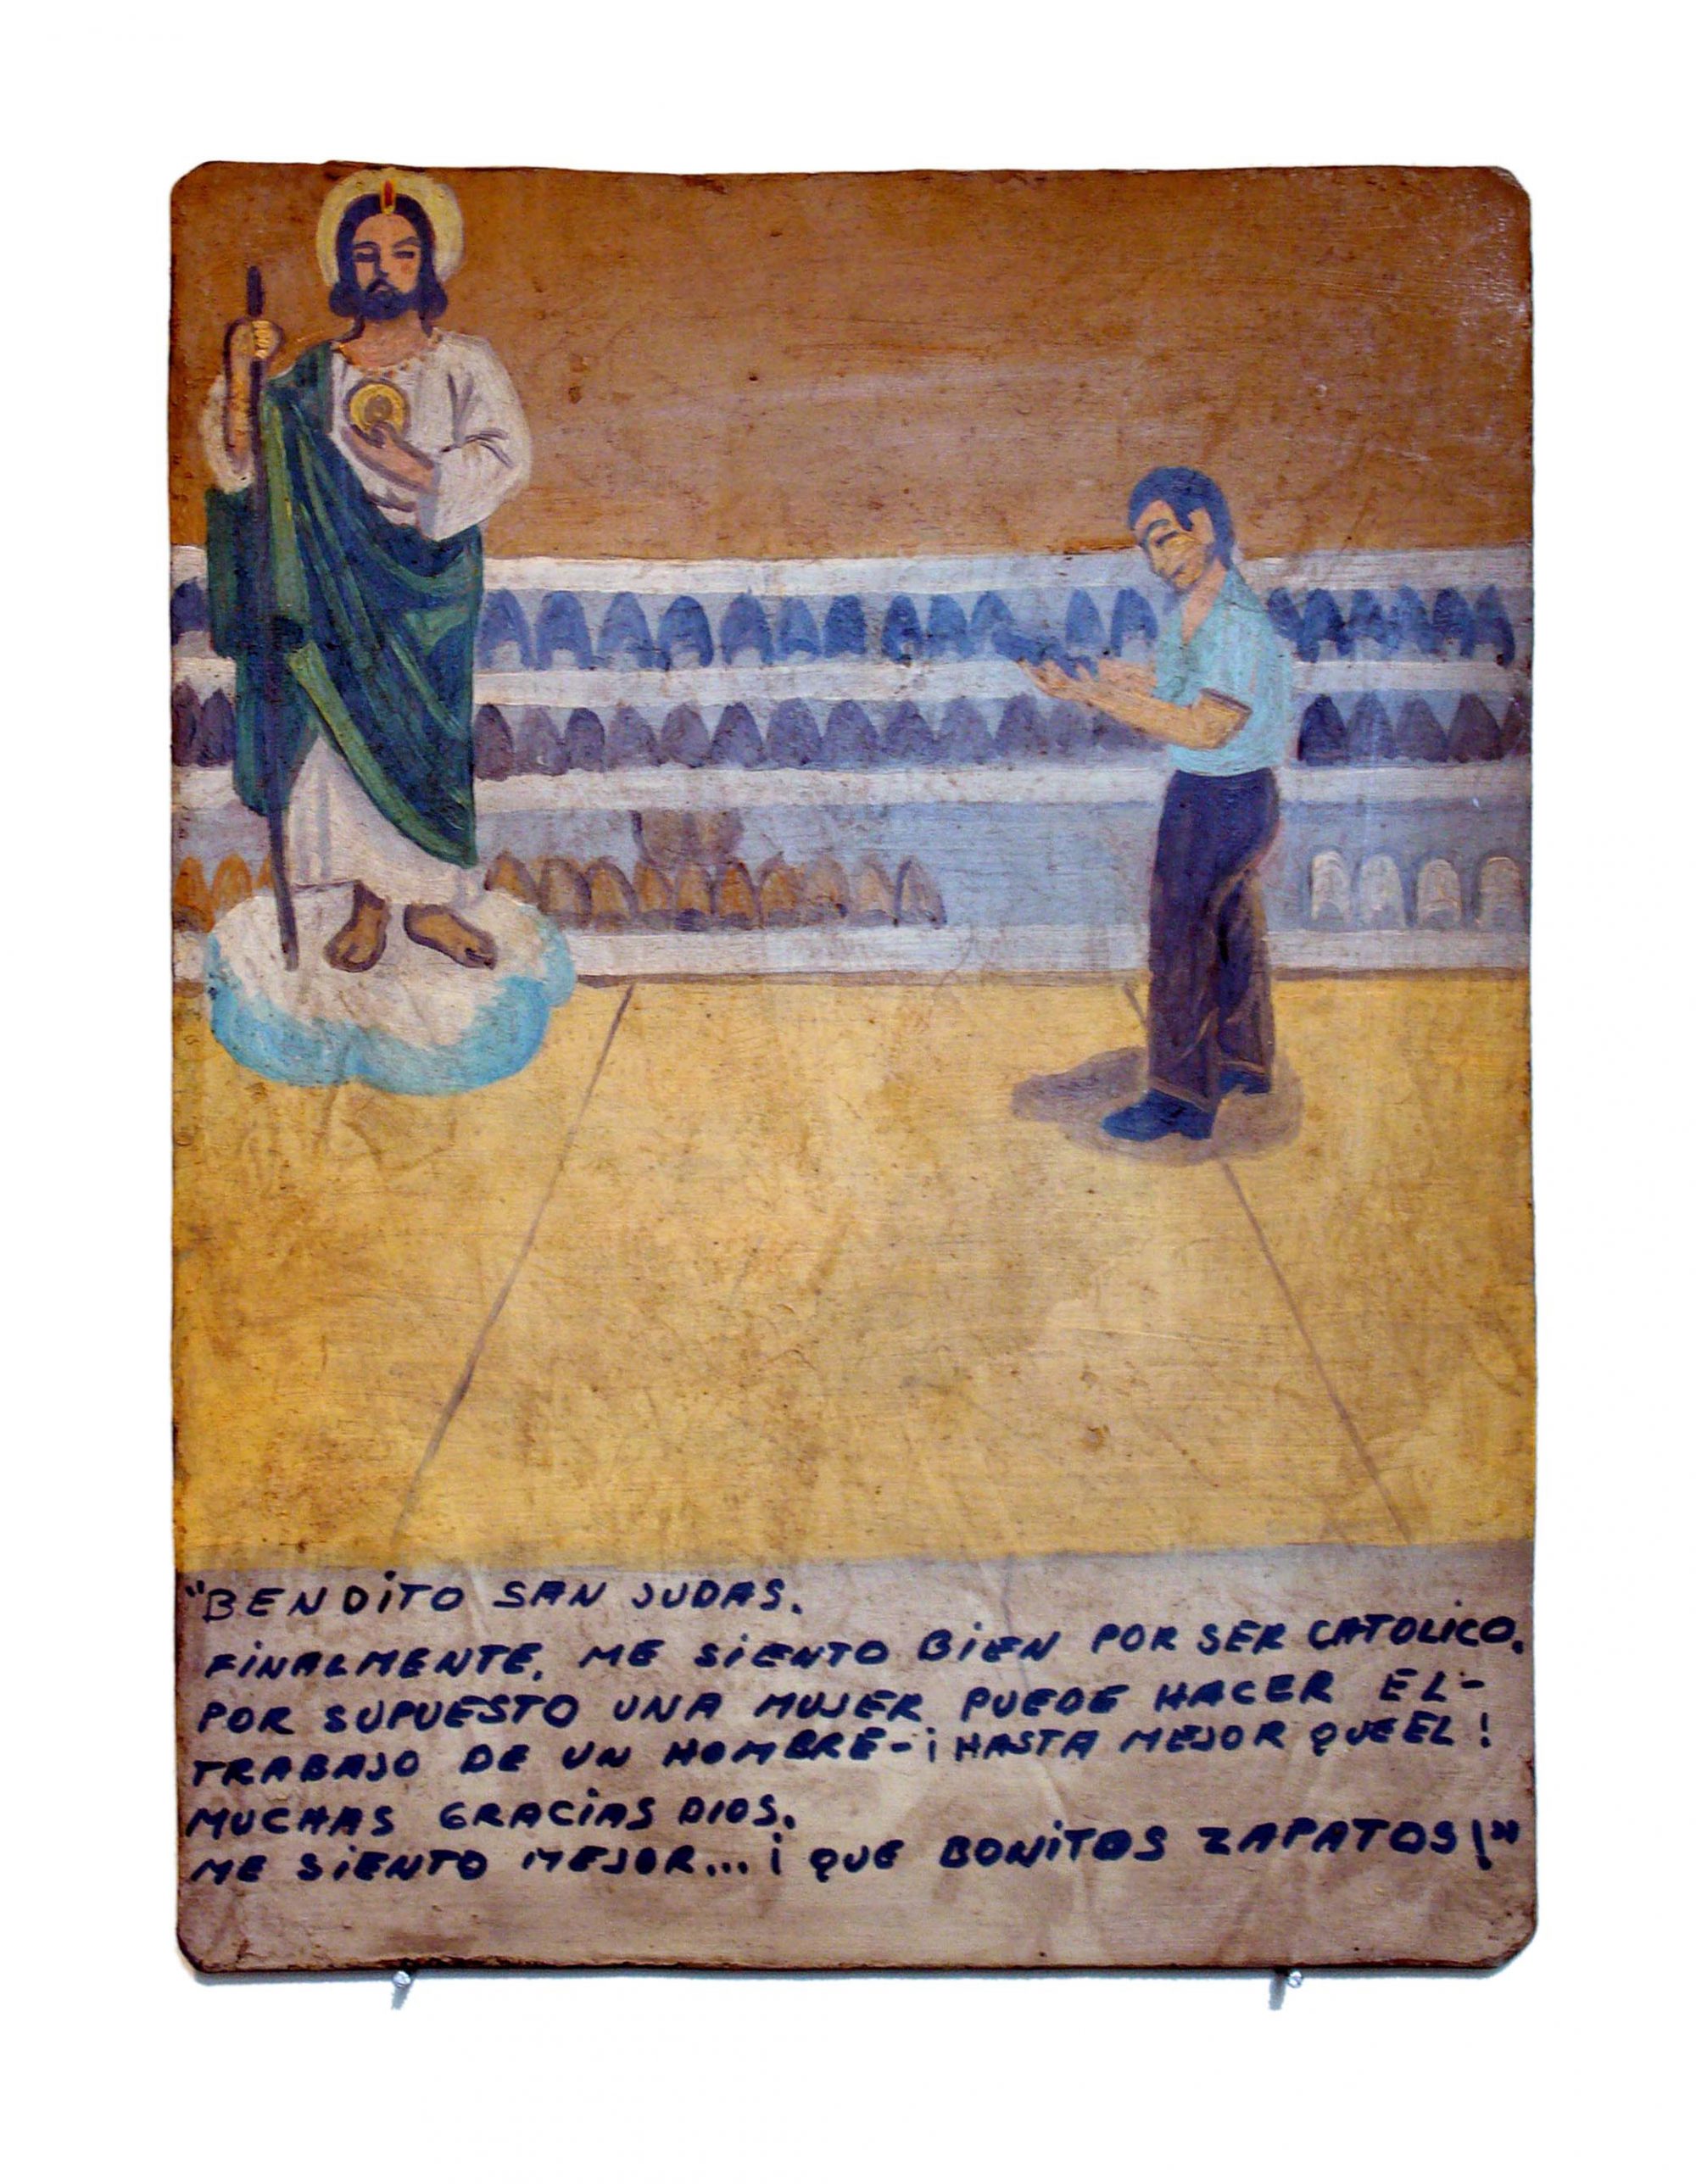 "BENDITO SAN JUDAS.
FINALMENTE, ME SIENTO BIEN POR SER CATOLICO.
POR SUPUESTO UNA MUJER PUEDE HACER EL-
TRABAJO DE UN HOMBRE-¡HASTA MEJOR QUE EL!
MUCHAS GRACIAS DIOS.
ME SIENTO MEJOR...¡QUE BONITOS ZAPATOS!"